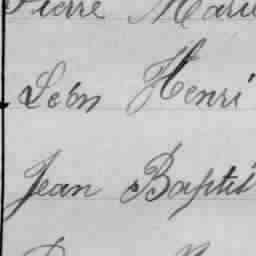 Pierre Marie
Léon Henri
Jean Baptis